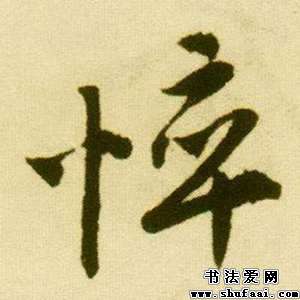 悴
书法爱网
www.shufaai.com